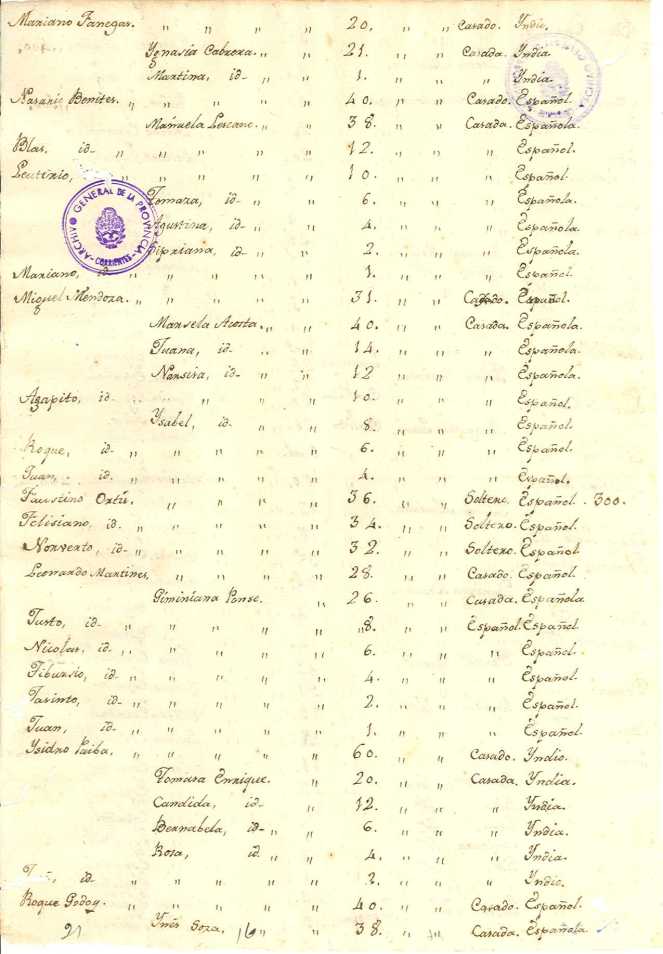 Mariano Fanegas. " " " " 20. " " Casado. Yndio.
Ygnasia Cabrera. " " 21. " " Casada. Yndia
Martina, id " " 1. " " " Yndia.
Nasario Benites. " " " " " 40. " " Casado. Español.
Manuela Lescano. " " 38. " " Casada. Española.
Blas, id " " " " " 12. " " " Español.
Leuterio, " " " 10. " " " Español.
Tomasa, id " " 6. " " " Española.
Agustina, id " " 4. " " " Española.
Sipriana, id " " 2. " " " Española.
Mariano, id " " " " 1. " " " Español.
Miguel Mendoza. " " " " " 31. " " Casado. Español.
Marsela Acosta. " " 40. " " Casada. Española.
Juana, id " " 14. " " " Española.
Narsisa, id " " 12 " " " Española.
Agapito, id " " " " 10. " " " Español.
Ysabel, id " " 8. " " " Española.
Roque, id " " " " " 6. " " " Español.
Juan, id " " " " " 4. " " " Español.
Faustino Ortis. " " " " 36. " " Soltero. Español. 300.
Felisiano, id " " " " " 34. " " Soltero. Español.
Norverto, id " " " " " 32. " " Soltero. Español
Leonardo Martines, " " " " 28. " " Casado. Español.
Giminiana Ponse. " 26. " " Casada. Española
Justo, id " " " " " 8. " " Español. Español.
Nicolas, id " " " " " 6. " " " Español.
Tibursio, id " " " " " 4. " " " Español.
Jasinto, id " " " " " 2. " " " Español.
Juan, id " " " " " 1. " " " Español.
Ysidro Paiba. " " " " " 60. " " Casado. Yndio.
Tomasa Enrique. " 20. " " Casada. Yndia.
Candida, id " " 12. " " " Yndia.
Bernabela, id " " 6. " " " Yndia.
Rosa, id " " 4. " " " Yndia.
id " " " " " 2. " " " Yndio.
Roque Godoy. " " " " 40. " " Casado. Español.
Ynés Soza, " " 38. " " Casada. Española
21 16
ARCHIVO GENERAL DE LA PROVINCIA
CORRIENTES